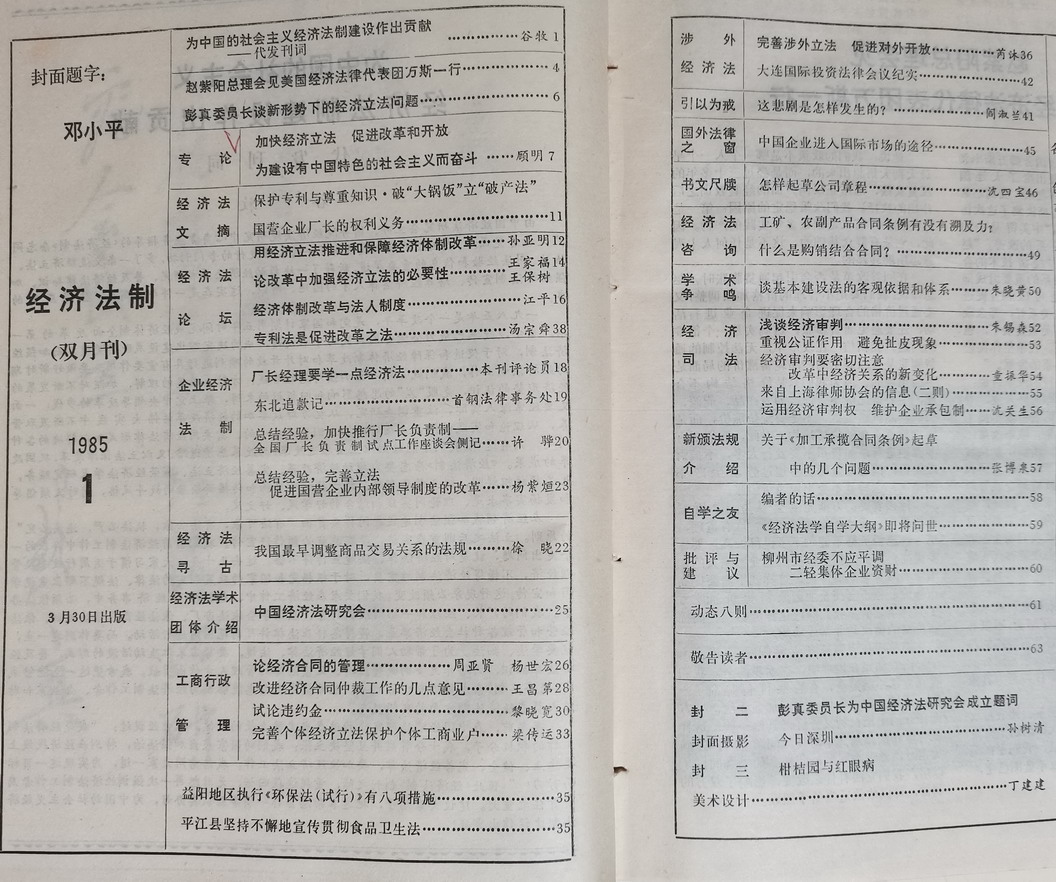 封面题字：
邓小平
经济法制
（双月刊）
1985
1
3月30日出版
为中国的社会主义经济法制建设作出贡献
——代发刊词……………谷牧 1
赵紫阳总理会见美国经济法律代表团万斯一行……………4
彭真委员长谈新形势下的经济立法问题……………6
专 论
加快经济立法 促进改革和开放
为建设有中国特色的社会主义而奋斗……顾明 7
经济法
文 摘
保护专利与尊重知识·破“大锅饭”立“破产法”
国营企业厂长的权利义务……………11
经济法
论 坛
用经济立法推进和保障经济体制改革……孙亚明12
论改革中加强经济立法的必要性…………王家福14
王保树
经济体制改革与法人制度……………江平16
专利法是促进改革之法……………汤宗舜38
企业经济
法 制
厂长经理要学一点经济法…………本刊评论员18
东北追款记……………首钢法律事务处19
总结经验，加快推行厂长负责制——
全国厂长负责制试点工作座谈会侧记……许 骅20
总结经验，完善立法
促进国营企业内部领导制度的改革……杨紫烜23
经济法
寻 古
我国最早调整商品交易关系的法规………徐 晓22
经济法学术
团体介绍
中国经济法研究会……………25
工商行政
管 理
论经济合同的管理……………周亚贤 杨世宏26
改进经济合同仲裁工作的几点意见………王昌第28
试论违约金……………黎晓宽30
完善个体经济立法保护个体工商业户……梁传运33
益阳地区执行《环保法（试行）》有八项措施……………35
平江县坚持不懈地宣传贯彻食品卫生法……………35
涉 外
经济法
完善涉外立法 促进对外开放…………芮沐36
大连国际投资法律会议纪实……………42
引以为戒
这悲剧是怎样发生的？…………阎淑兰41
国外法律
之 窗
中国企业进入国际市场的途径……………45
书文尺牍
怎样起草公司章程……………沈四宝46
经济法
咨 询
工矿、农副产品合同条例有没有溯及力？
什么是购销结合合同？……………49
学 术
争 鸣
谈基本建设法的客观依据和体系………朱晓黄50
经 济
司 法
浅谈经济审判……………朱锡森52
重视公证作用 避免扯皮现象……………53
经济审判要密切注意
改革中经济关系的新变化………童振华54
来自上海律师协会的信息（二则）……………55
运用经济审判权 维护企业承包制……沈关生56
新颁法规
介 绍
关于《加工承揽合同条例》起草
中的几个问题……………张博泉57
自学之友
编者的话……………58
《经济法学自学大纲》即将问世……………59
批评与
建 议
柳州市经委不应平调
二轻集体企业资财……………60
动态八则……………61
敬告读者……………63
封 二 彭真委员长为中国经济法研究会成立题词
封面摄影 今日深圳……………孙树清
封 三 柑桔园与红眼病
美术设计……………丁建建